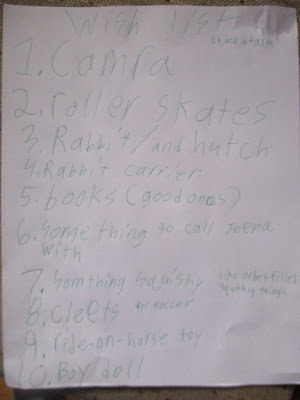 Wish list
1. Camra
2. roller skates
3. Rabbit/and hutch
4. Rabbit carrier
5. books (good ones)
6. some thing to call Joena
with
7. Somthing squishy like orbes filled
squishy things
8. cleets for soccer
9. ride-on-horse toy
10. Boy doll